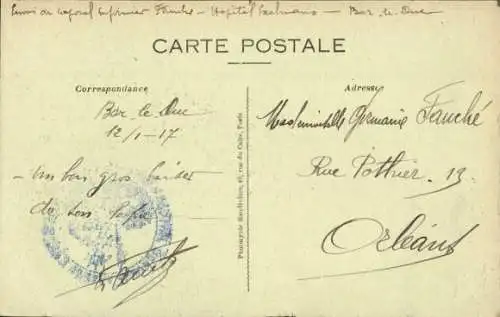 Envoi du caporal infirmier Fauché – Hôpital Exelmans – Bar-le-Duc
CARTE POSTALE
Correspondance
Adresse
Bar le Duc
12/1-17
– Un bien gros baiser
de ton Papa
Fauché
Phototypie Baudinière, 40, rue du Caire, Paris
Mademoiselle Germaine Fauché
Rue Pothier. 13
Orléans